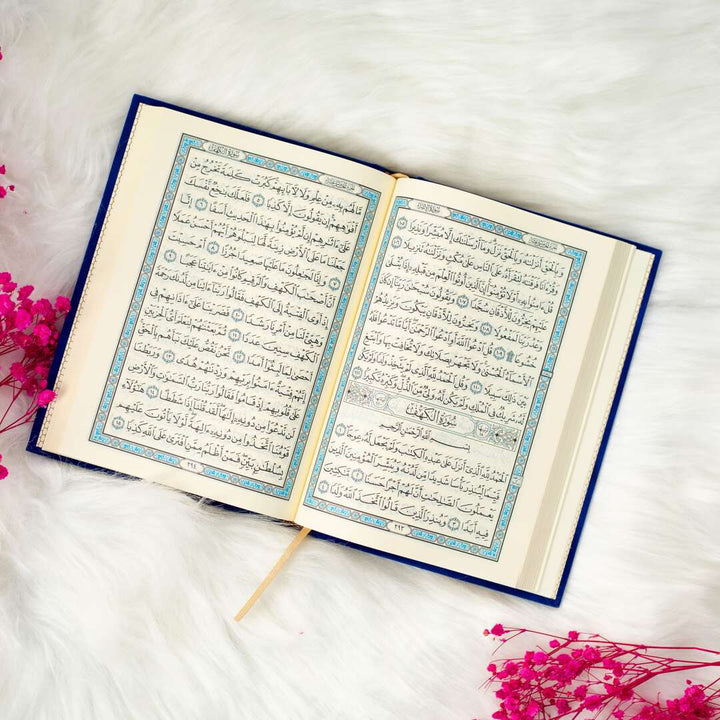 وَبِالْحَقِّ أَنزَلْنَاهُ وَبِالْحَقِّ نَزَلَ وَمَا أَرْسَلْنَاكَ إِلَّا مُبَشِّرًا وَنَذِيرًا ١٠٥
وَقُرْآنًا فَرَقْنَاهُ لِتَقْرَأَهُ عَلَى النَّاسِ عَلَىٰ مُكْثٍ وَنَزَّلْنَاهُ تَنزِيلًا ١٠٦
قُلْ آمِنُوا بِهِ أَوْ لَا تُؤْمِنُوا إِنَّ الَّذِينَ أُوتُوا الْعِلْمَ مِن قَبْلِهِ إِذَا يُتْلَىٰ
عَلَيْهِمْ يَخِرُّونَ لِلْأَذْقَانِ سُجَّدًا ١٠٧ وَيَقُولُونَ سُبْحَانَ رَبِّنَا إِن كَانَ
وَعْدُ رَبِّنَا لَمَفْعُولًا ١٠٨ وَيَخِرُّونَ لِلْأَذْقَانِ يَبْكُونَ وَيَزِيدُهُمْ
خُشُوعًا ۩ ١٠٩ قُلِ ادْعُوا اللَّهَ أَوِ ادْعُوا الرَّحْمَٰنَ أَيًّا مَّا تَدْعُوا فَلَهُ
الْأَسْمَاءُ الْحُسْنَىٰ وَلَا تَجْهَرْ بِصَلَاتِكَ وَلَا تُخَافِتْ بِهَا وَابْتَغِ
بَيْنَ ذَٰلِكَ سَبِيلًا ١١٠ وَقُلِ الْحَمْدُ لِلَّهِ الَّذِي لَمْ يَتَّخِذْ وَلَدًا وَلَمْ يَكُن
لَّهُ شَرِيكٌ فِي الْمُلْكِ وَلَمْ يَكُن لَّهُ وَلِيٌّ مِّنَ الذُّلِّ وَكَبِّرْهُ تَكْبِيرًا ١١١
سُورَةُ الْكَهْفِ
بِسْمِ اللَّهِ الرَّحْمَٰنِ الرَّحِيمِ
الْحَمْدُ لِلَّهِ الَّذِي أَنزَلَ عَلَىٰ عَبْدِهِ الْكِتَابَ وَلَمْ يَجْعَل لَّهُ عِوَجًا ١
قَيِّمًا لِّيُنذِرَ بَأْسًا شَدِيدًا مِّن لَّدُنْهُ وَيُبَشِّرَ الْمُؤْمِنِينَ الَّذِينَ
يَعْمَلُونَ الصَّالِحَاتِ أَنَّ لَهُمْ أَجْرًا حَسَنًا ٢ مَّاكِثِينَ
فِيهِ أَبَدًا ٣ وَيُنذِرَ الَّذِينَ قَالُوا اتَّخَذَ اللَّهُ وَلَدًا ٤
٢٩٣
سُورَةُ الْكَهْفِ
مَّا لَهُم بِهِ مِنْ عِلْمٍ وَلَا لِآبَائِهِمْ كَبُرَتْ كَلِمَةً تَخْرُجُ مِنْ
أَفْوَاهِهِمْ إِن يَقُولُونَ إِلَّا كَذِبًا ٥ فَلَعَلَّكَ بَاخِعٌ نَّفْسَكَ
عَلَىٰ آثَارِهِمْ إِن لَّمْ يُؤْمِنُوا بِهَٰذَا الْحَدِيثِ أَسَفًا ٦ إِنَّا
جَعَلْنَا مَا عَلَى الْأَرْضِ زِينَةً لَّهَا لِنَبْلُوَهُمْ أَيُّهُمْ أَحْسَنُ عَمَلًا
٧ وَإِنَّا لَجَاعِلُونَ مَا عَلَيْهَا صَعِيدًا جُرُزًا ٨ أَمْ حَسِبْتَ
أَنَّ أَصْحَابَ الْكَهْفِ وَالرَّقِيمِ كَانُوا مِنْ آيَاتِنَا عَجَبًا ٩
إِذْ أَوَى الْفِتْيَةُ إِلَى الْكَهْفِ فَقَالُوا رَبَّنَا آتِنَا مِن لَّدُنكَ رَحْمَةً
وَهَيِّئْ لَنَا مِنْ أَمْرِنَا رَشَدًا ١٠ فَضَرَبْنَا عَلَىٰ آذَانِهِمْ فِي
الْكَهْفِ سِنِينَ عَدَدًا ١١ ثُمَّ بَعَثْنَاهُمْ لِنَعْلَمَ أَيُّ الْحِزْبَيْنِ
أَحْصَىٰ لِمَا لَبِثُوا أَمَدًا ١٢ نَّحْنُ نَقُصُّ عَلَيْكَ نَبَأَهُم بِالْحَقِّ
إِنَّهُمْ فِتْيَةٌ آمَنُوا بِرَبِّهِمْ وَزِدْنَاهُمْ هُدًى ١٣ وَرَبَطْنَا
عَلَىٰ قُلُوبِهِمْ إِذْ قَامُوا فَقَالُوا رَبُّنَا رَبُّ السَّمَاوَاتِ وَالْأَرْضِ
لَن نَّدْعُوَ مِن دُونِهِ إِلَٰهًا لَّقَدْ قُلْنَا إِذًا شَطَطًا ١٤ هَٰؤُلَاءِ
قَوْمُنَا اتَّخَذُوا مِن دُونِهِ آلِهَةً لَّوْلَا يَأْتُونَ عَلَيْهِم
بِسُلْطَانٍ بَيِّنٍ فَمَنْ أَظْلَمُ مِمَّنِ افْتَرَىٰ عَلَى اللَّهِ كَذِبًا ١٥
٢٩٤